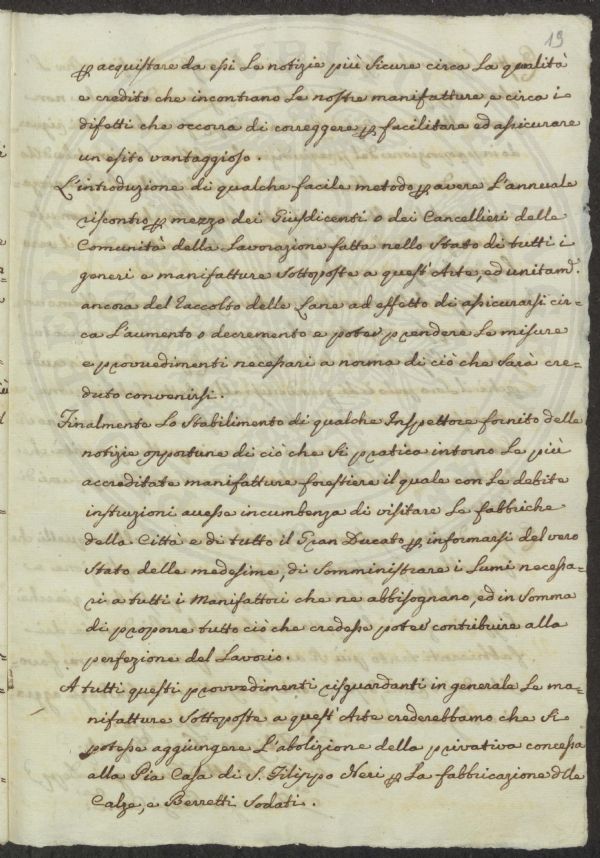 19
ꝑ acquistare da essi Le notizie più Sicure circa La qualità
e credito che incontrano Le nostre manifatture, e circa i
difetti che occorra di correggere ꝑ facilitare ed assicurare
un esito vantaggioso.
L'introduzione di qualche facile metodo ꝑ avere L'annuale
riscontro ꝑ mezzo dei Giusdicenti o dei Cancellieri delle
Comunità della Lavorazione fatta nello Stato di tutti i
generi e manifatture Sottoposte a quest'Arte, ed unitamd.
ancora del Raccolto delle Lane ad effetto di assicurarsi cir=
ca L'aumento o decremento e poter prendere Le misure
e provvedimenti necessari a norma di ciò che Sarà cre=
duto convenirsi.
Finalmente Lo Stabilimento di qualche Inspettore fornito delle
notizie opportune di ciò che Si pratica intorno Le più
accreditate manifatture forestiere il quale con Le debite
instruzioni avesse incumbenza di visitare Le fabbriche
della Città e di tutto il Gran Ducato ꝑ informarsi del vero
Stato delle medesime, di Somministrare i Lumi necessa=
ri a tutti i Manifattori che ne abbisognano, ed in Somma
di proporre tutto ciò che credesse poter contribuire alla
perfezione del Lavorio.
A tutti questi provvedimenti risguardanti in generale Le ma=
nifatture Sottoposte a quest'Arte crederebbamo che Si
potesse aggiungere L'abolizione della privativa concessa
alla Pia Casa di S. Filippo Neri ꝑ La fabbricazione dlle
Calze, e Berretti Sodati.